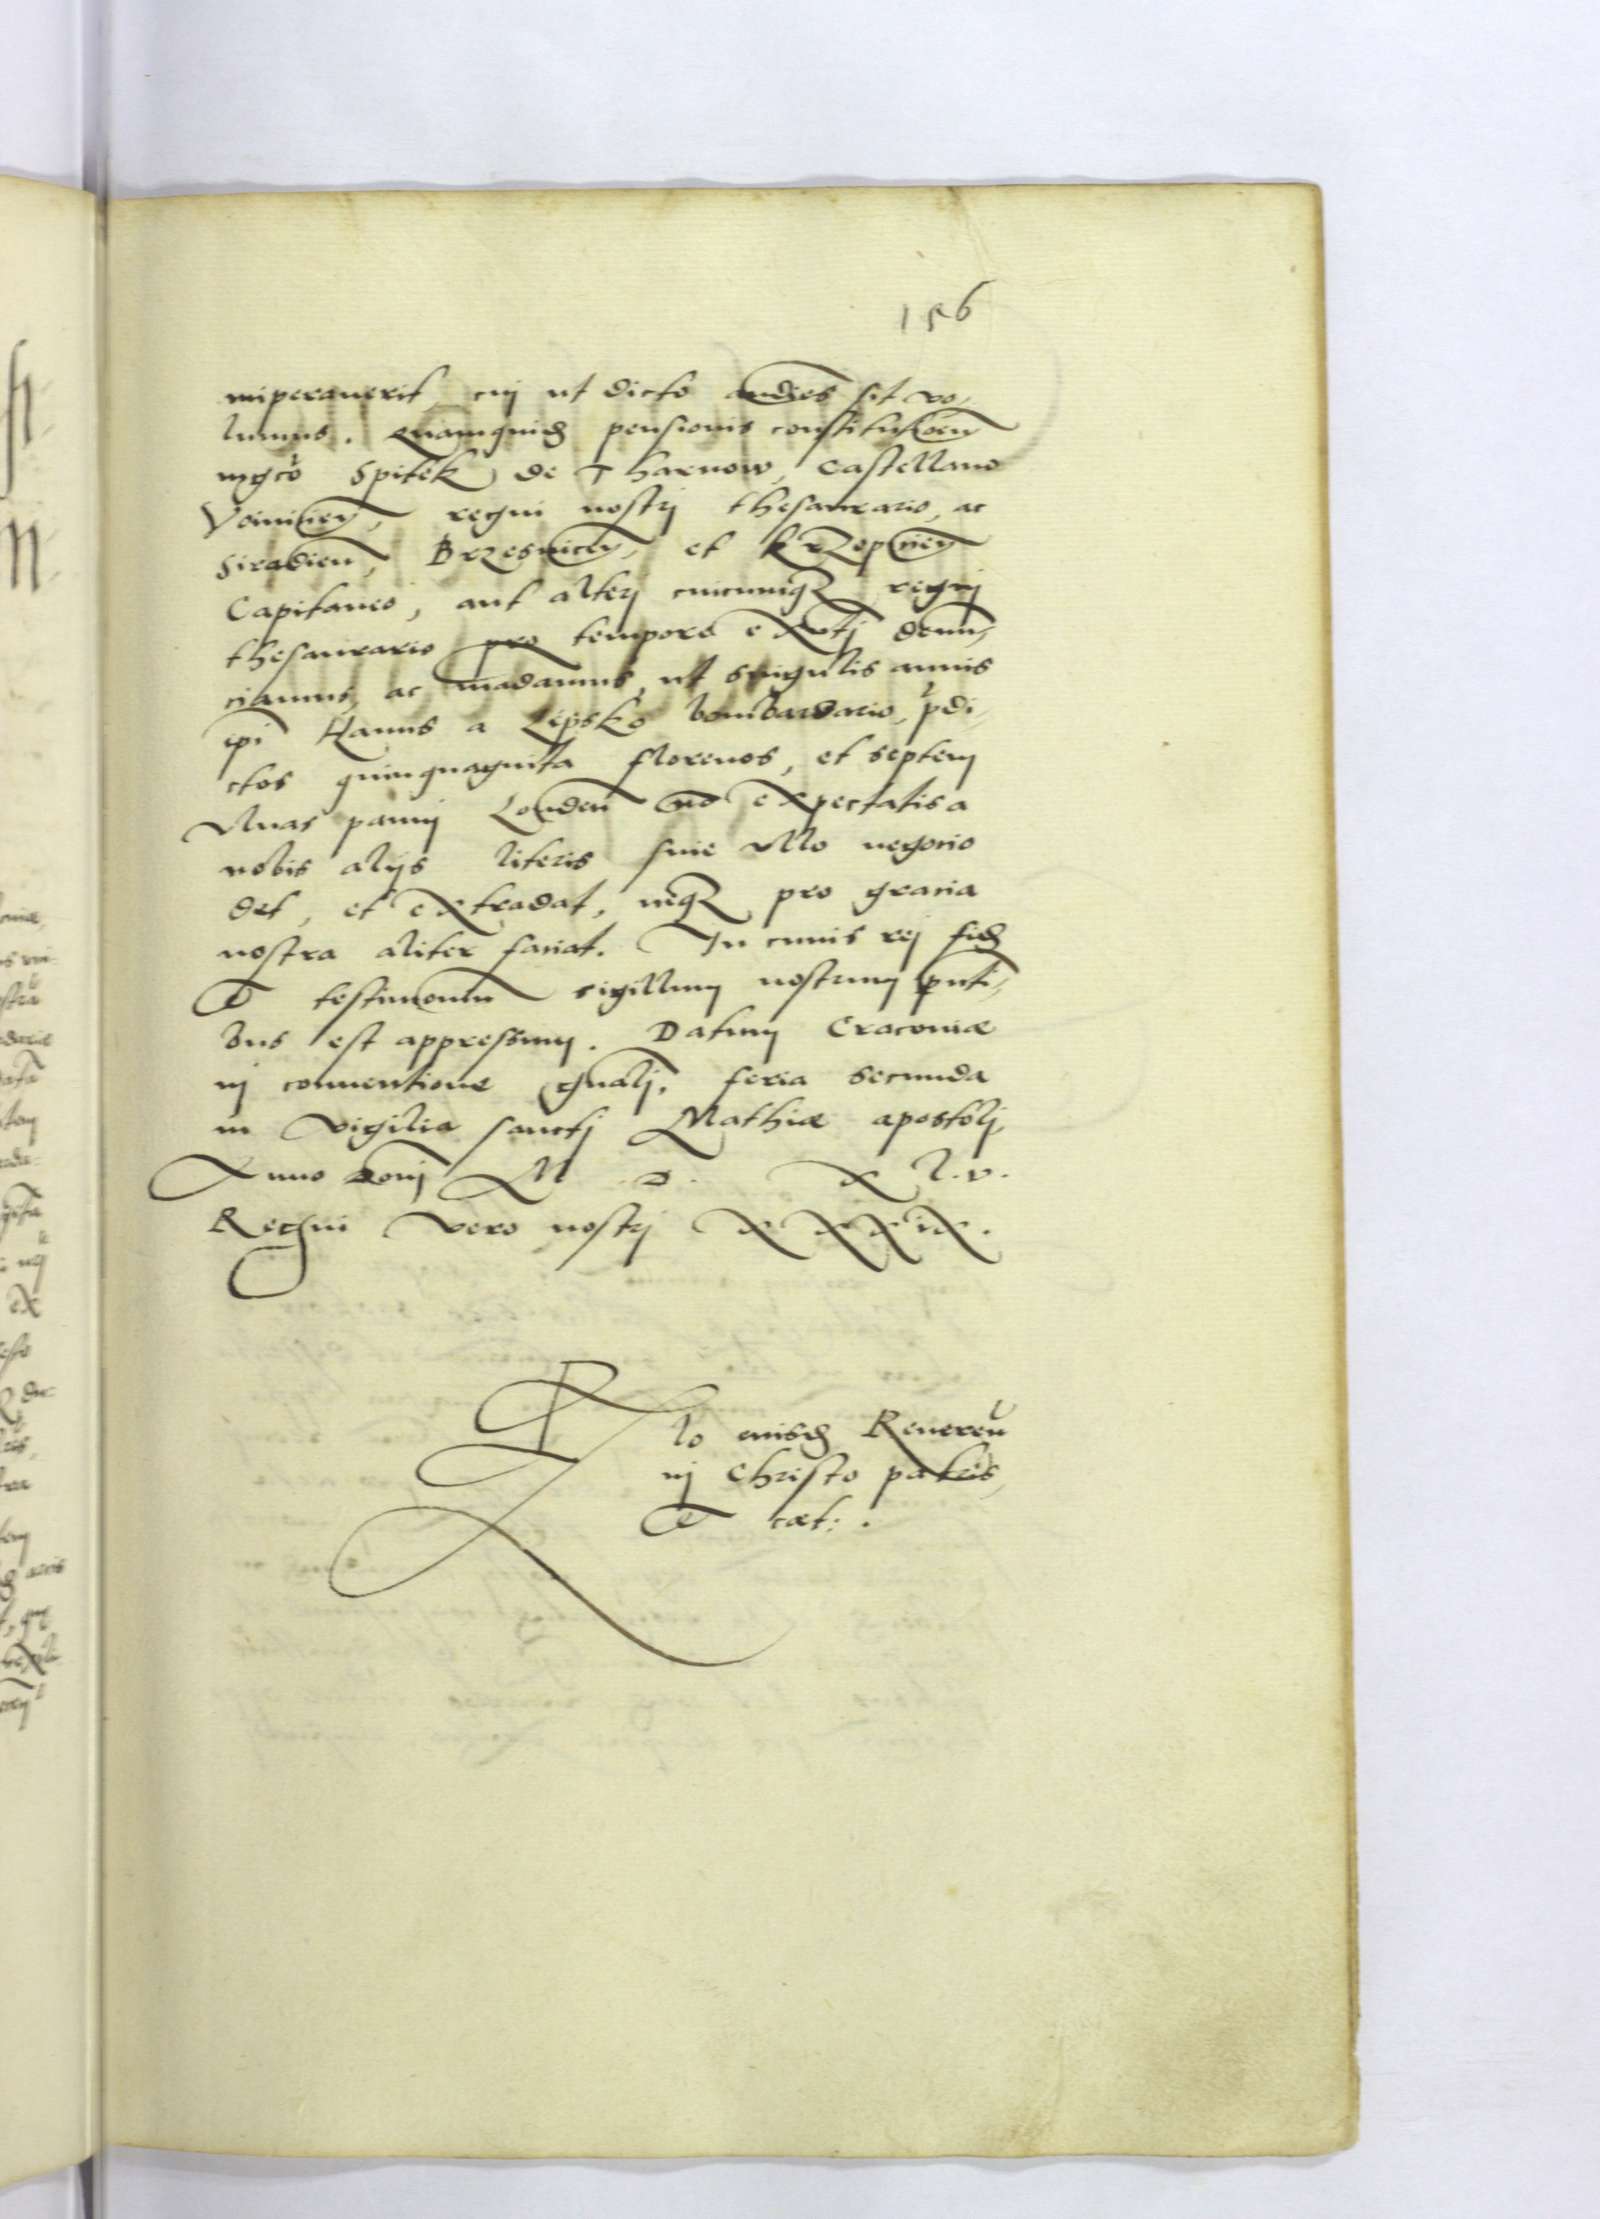 156
imperaverit, cui ut dicto audiēs sit vo-
lumus. Quamquidē pensionis constitutionē
mgco Spitek de Tharnow, Castellano
Voiniciēn, regni nostri thesaurario, ac
Siradien, Brzesniceñ, et Krzepiceñ
Capitaneo, aut alteri cuicumqʒ regni
thesaurario pro tempore exñti denun-
ciamus, ac mādamus, ut singulis annis
ipi Hanus a Lipsko bombardario, pdi-
ctos quinquaginta florenos, et septem
Ulnas panni Londeñ nō expectatis a
nobis alijs literis sine ullo negocio
det, et extradat, neqʒ pro gracia
nostra aliter faciat. In cuius rei fidē
& testimoniū sigillum nostrum pnti-
bus est appressum. Datum Cracoviæ
in conventione gñali, feria secunda
in vigilia sancti Mathiæ apostoli,
Anno Domi M . D . X L . V .
Regni vero nostri X X X I X .
Rlo eiusdē Revereñ
in Christo patris,
& cæt: .